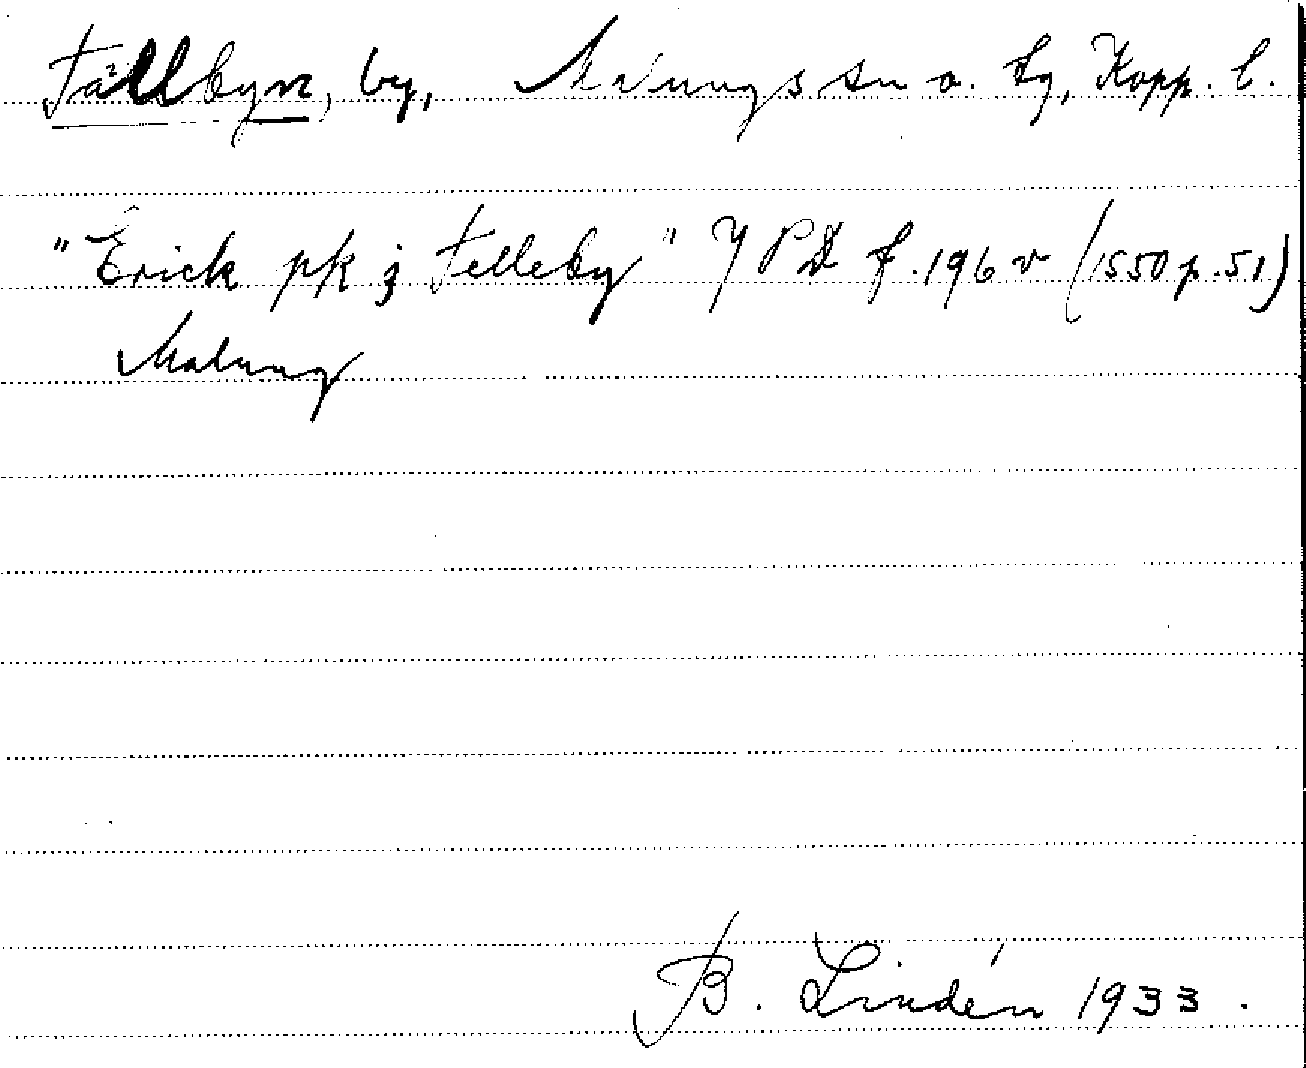 Fällbyn, by, Malungs sn o. tg, Kopp. l.
"Erick pk j Felleby" YPD f. 196 v (1550 p. 51)
Malung
B. Lindén 1933.